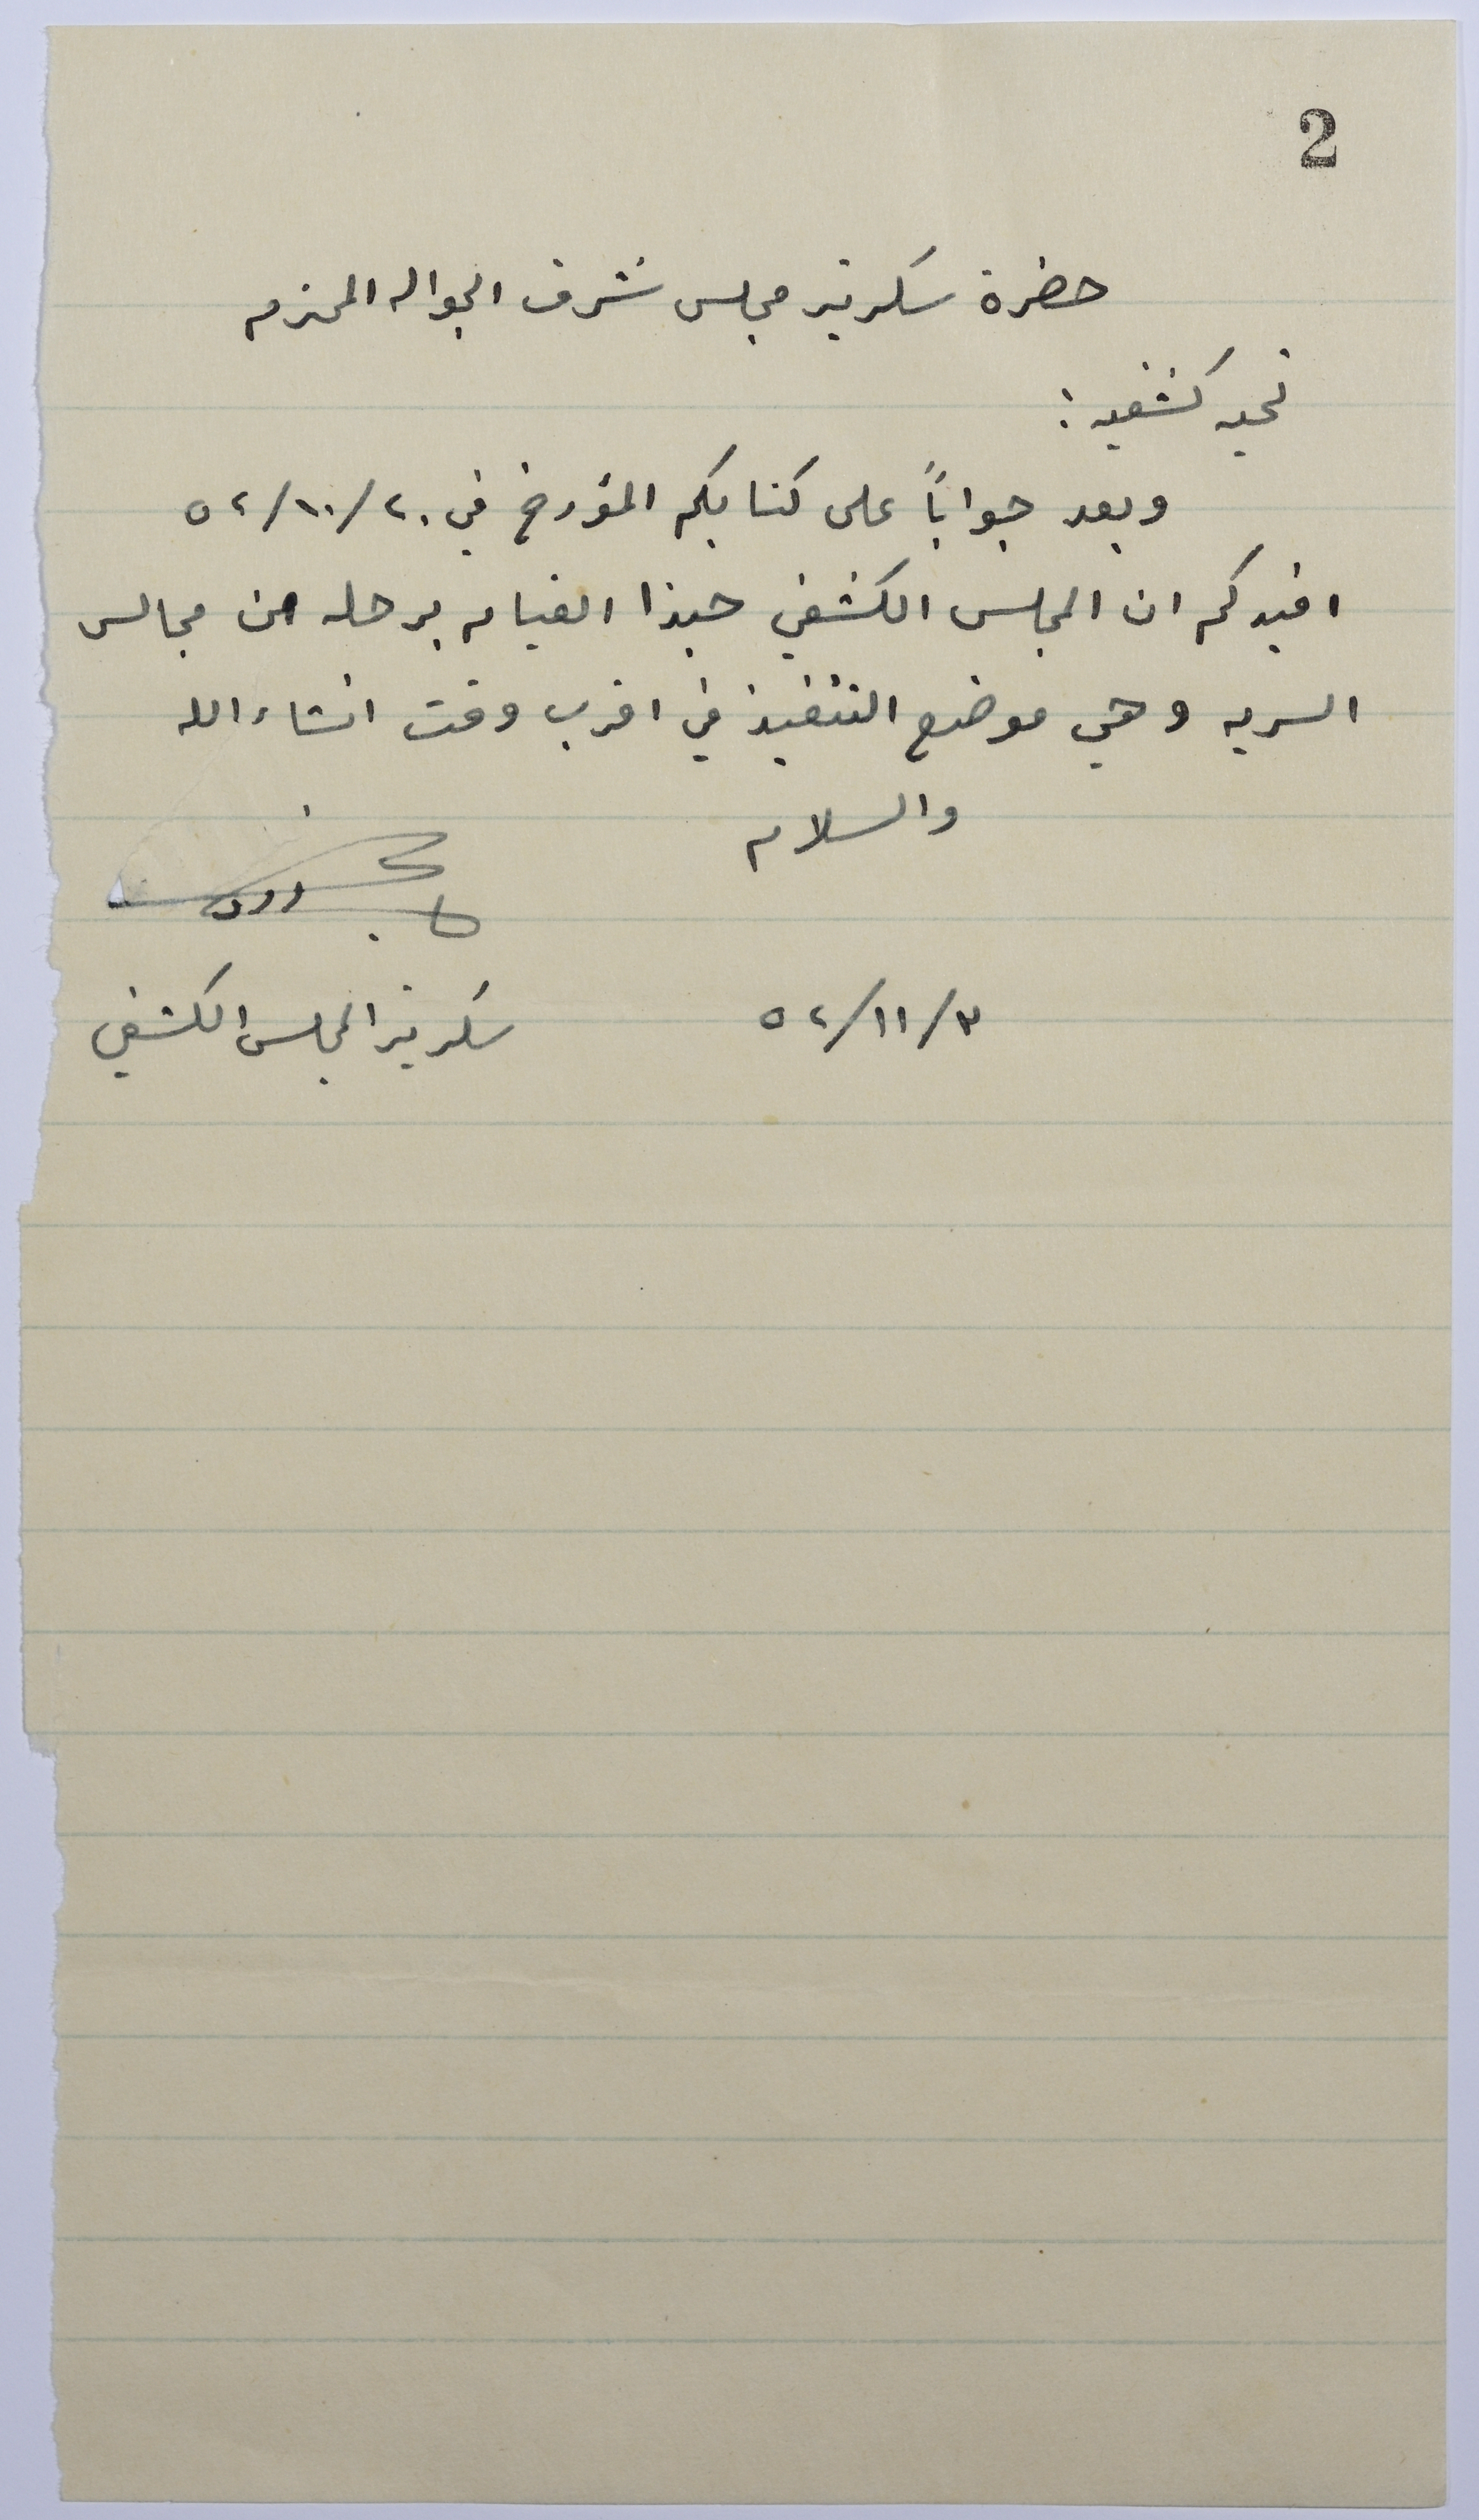 2
حضرة سكرتير مجلس شرف الجواله المحترم
تحيه كشفيه :
وبعد جواباً على كتابكم المؤرخ في ٢٠/١٠/٥٢
افيدكم ان المجلس الكشفي حبذا القيام برحله من مجالس
السريه وهي موضع التنفيذ في اقرب وقت انشاء الله
والسلام
٣/١١/٥٢
سكرتير المجلس الكشفي